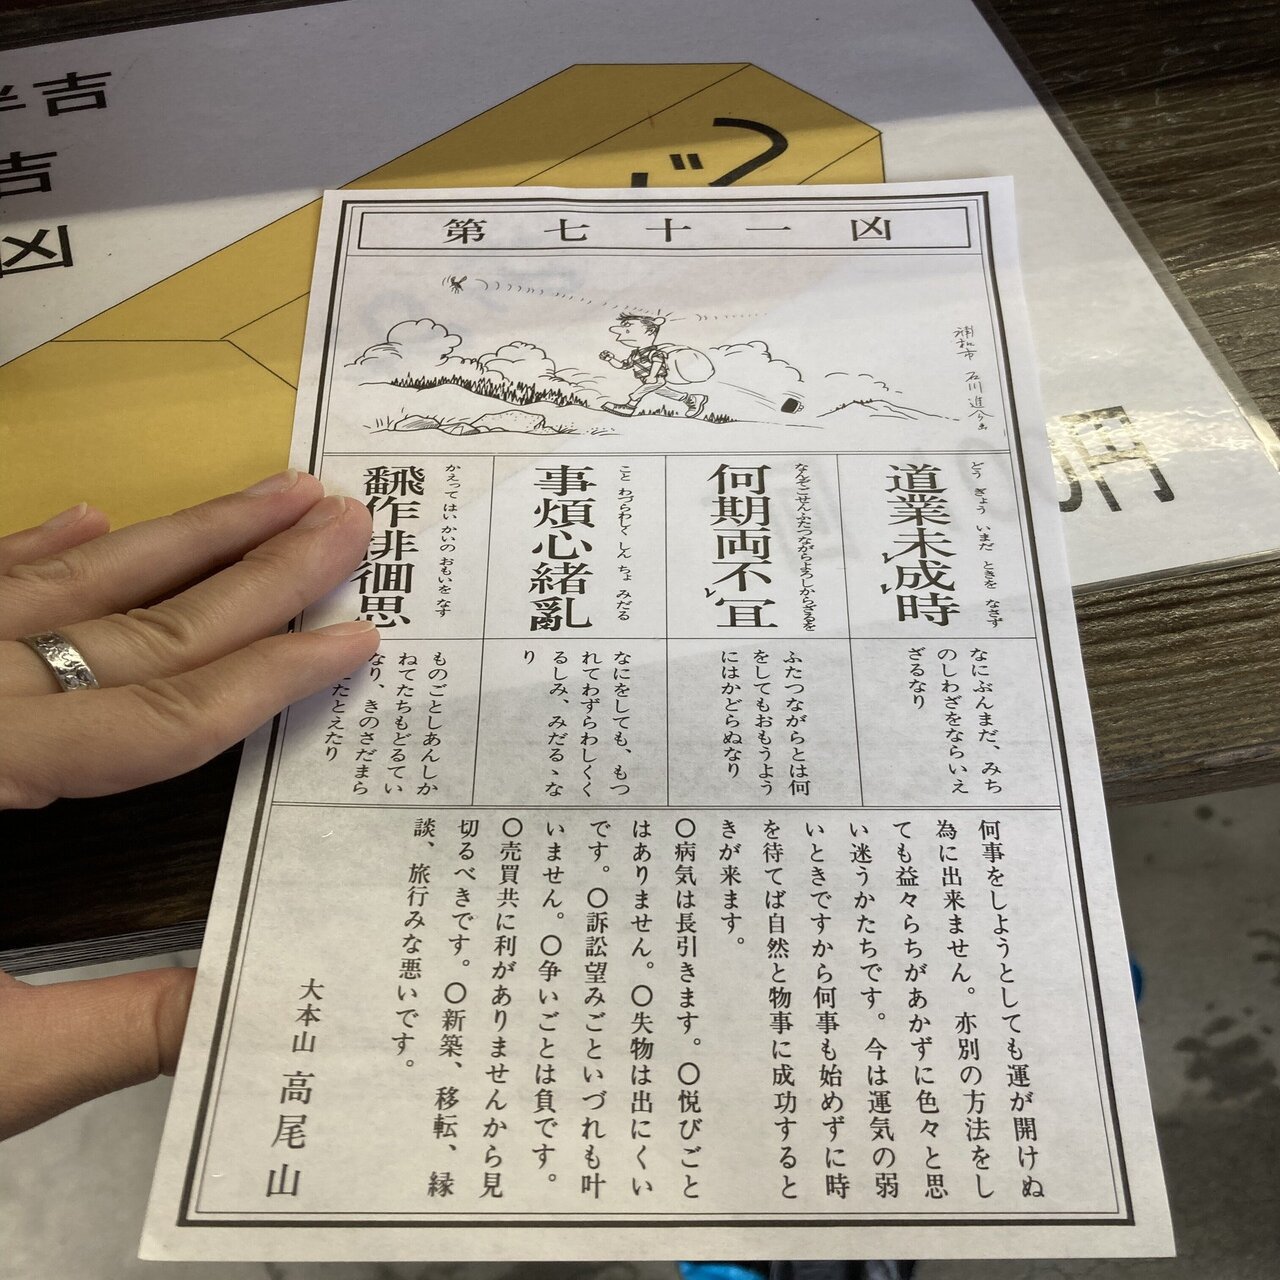 半吉
吉
凶
第七十一凶
浦和市 石川進介画
道業未成時
どう ぎょう いまだ ときを なさず
なにぶんまだ、みち
のしわざをならいえ
ざるなり
何期両不宜
なんぞごせんふたつながらよろしからざるを
ふたつながらとは何
をしてもおもうよう
にはかどらぬなり
事煩心緒亂
こと わづらわしく しん ちょ みだる
なにをしても、もつ
れてわずらわしくく
るしみ、みだるゝな
り
飜作徘徊思
かえって はい かいの おもいを なす
ものごとしあんしか
ねてたちもどるてい
なり、きのさだまら
たとえたり
何事をしようとしても運が開けぬ
為に出来ません。亦別の方法をし
ても益々らちがあかずに色々と思
い迷うかたちです。今は運気の弱
いときですから何事も始めずに時
を待てば自然と物事に成功すると
きが来ます。
〇病気は長引きます。〇悦びごと
はありません。〇失物は出にくい
です。〇訴訟望みごといづれも叶
いません。〇争いごとは負です。
〇売買共に利がありませんから見
切るべきです。〇新築、移転、縁
談、旅行みな悪いです。
大本山 高尾山